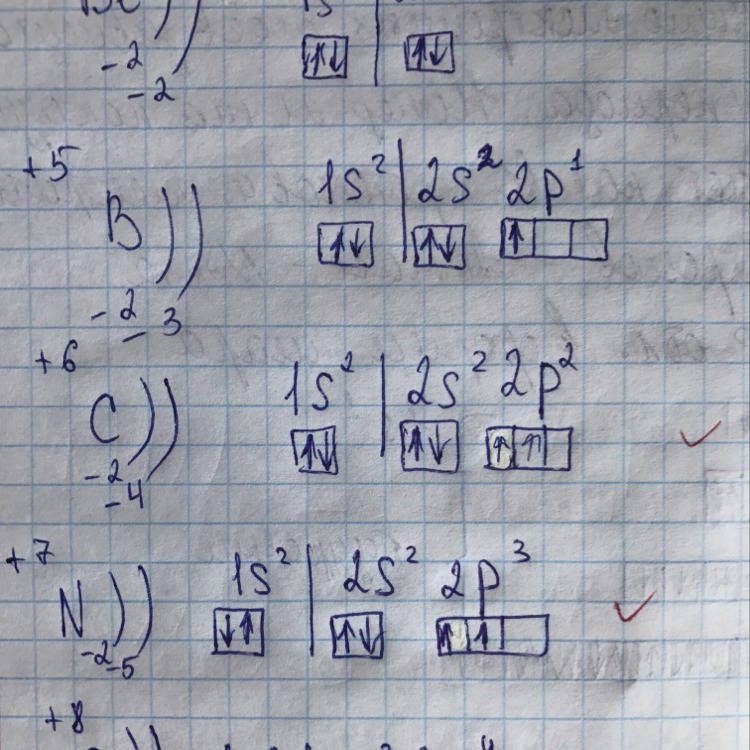 -2
-2
+5
B )) 1s² | 2s² 2p¹
↑↓ ↑↓ ↑
-2
-3
+6
C )) 1s² | 2s² 2p²
↑↓ ↑↓ ↑ ↑
-2
-4
+7
N )) 1s² | 2s² 2p³
↓↑ ↑↓ ↑ ↑
-2 -5
+8